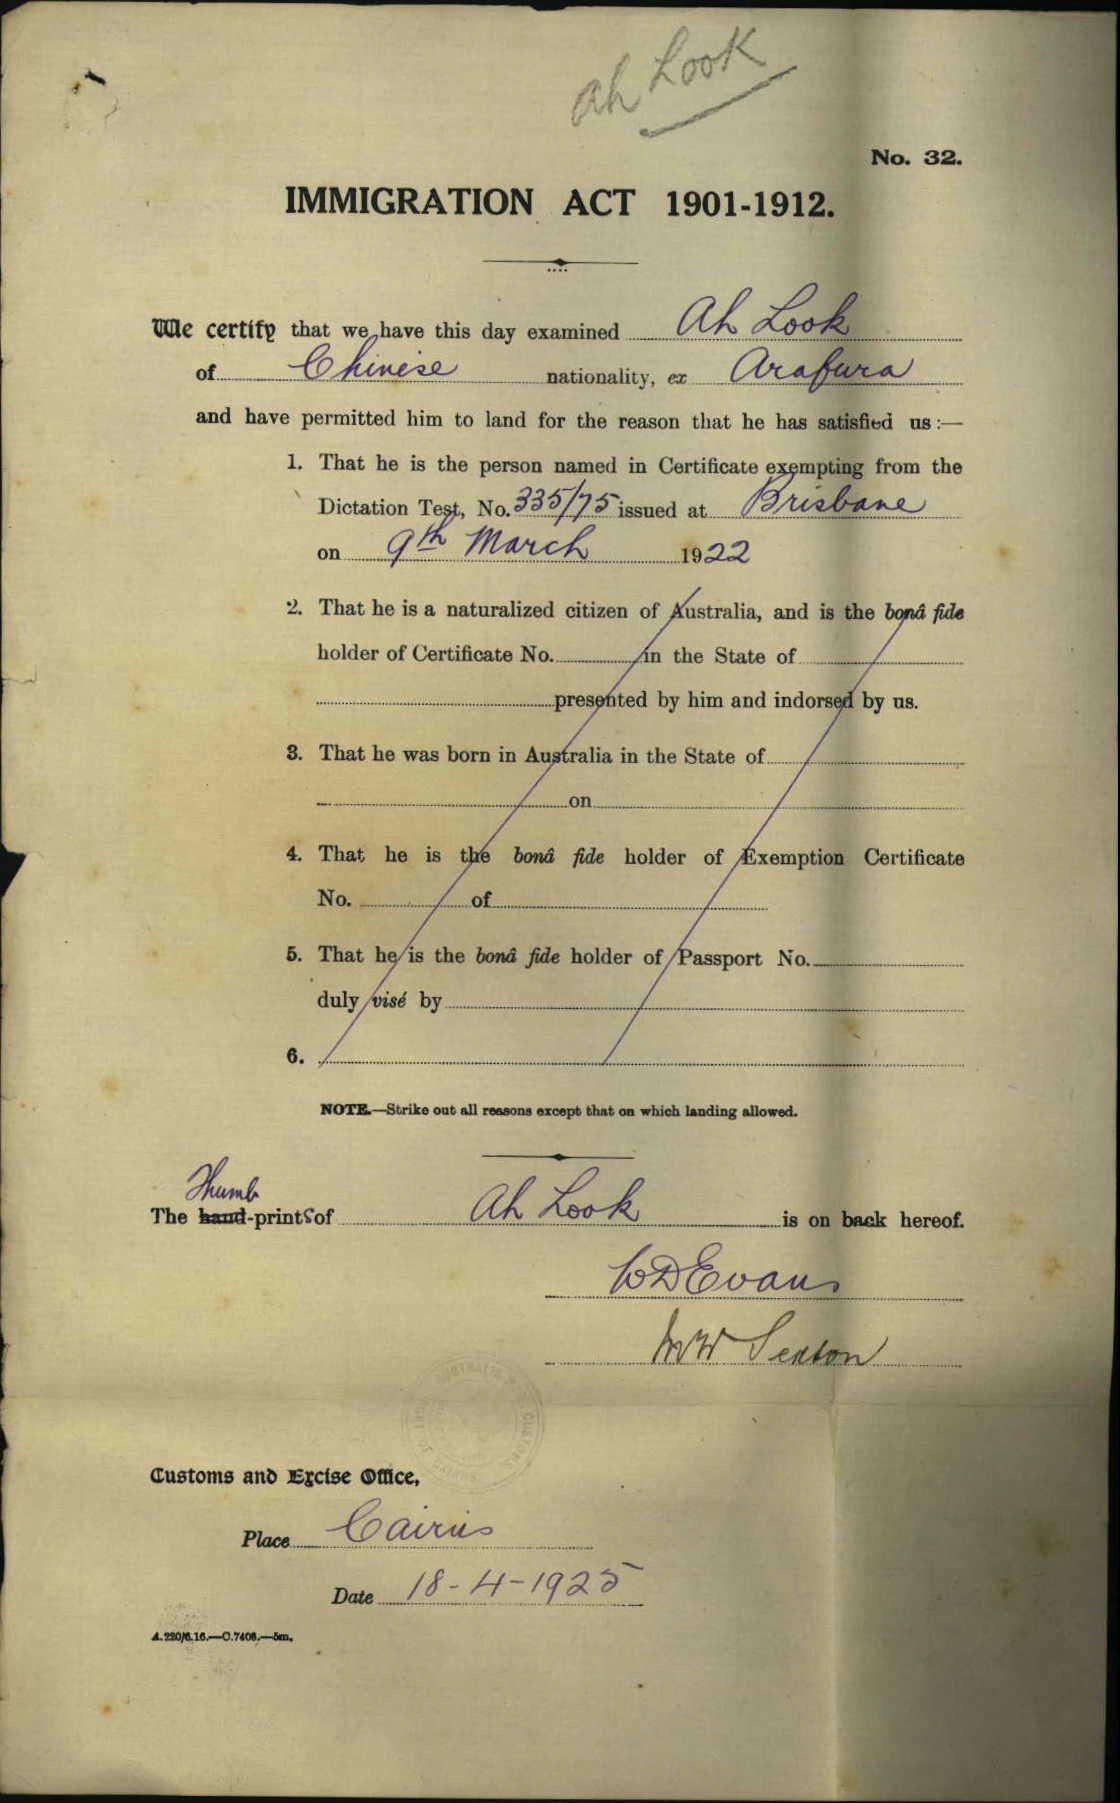 Ah Look
No. 32.
IMMIGRATION ACT 1901-1912.
We certify that we have this day examined Ah Look
of Chinese nationality, ex Arafura
and have permitted him to land for the reason that he has satisfied us :—
1. That he is the person named in Certificate exempting from the
Dictation Test, No. 335/75 issued at Brisbane
on 9th March 1922
2. That he is a naturalized citizen of Australia, and is the bonâ fide
holder of Certificate No. in the State of
presented by him and indorsed by us.
3. That he was born in Australia in the State of
on
4. That he is the bonâ fide holder of Exemption Certificate
No. of
5. That he is the bonâ fide holder of Passport No.
duly visé by
6.
NOTE.—Strike out all reasons except that on which landing allowed.
Thumb
The hand-prints of Ah Look is on back hereof.
W D Evans
M W Sexton
Customs and Excise Office,
Place Cairns
Date 18-4-1925
A.220/6.16.—C.7408.—5m.